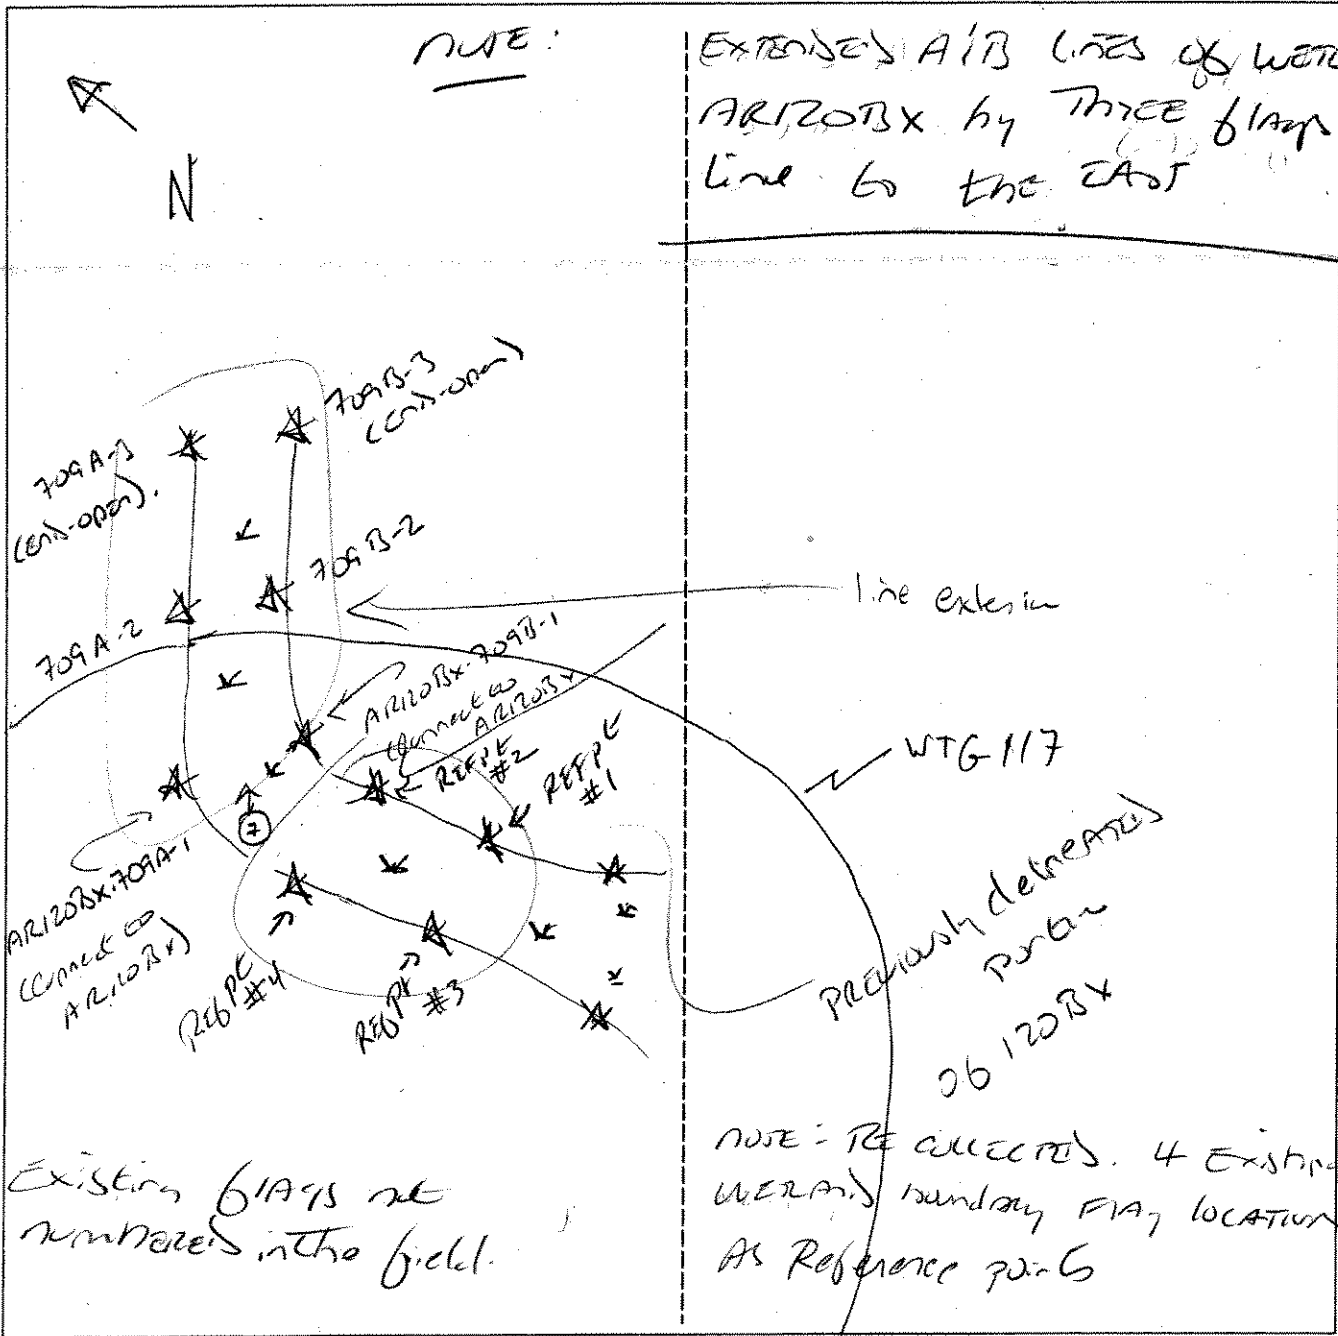 NOTE:
EXTENDED A/B LINES OF WETL
AR120BX by THREE flags
line to the EAST
N
709B-3
(END-OPEN)
709A-3
(END-OPEN).
709B-2
709A-2
line extension
AR120BX-709B-1
(Connect to
AR120BX
REFPt
#2
REFPt
#1
WTG 117
7
AR120BX-709A-1
(Connect to
AR120BX)
REFPt
#4
REFPt
#3
PREVIOUSLY delineated
Portion
of 120BX
Existing flags not
numbered in the field.
NOTE: RE COLLECTED. 4 Existing
WETLAND boundary FLAG LOCATION
AS Reference points